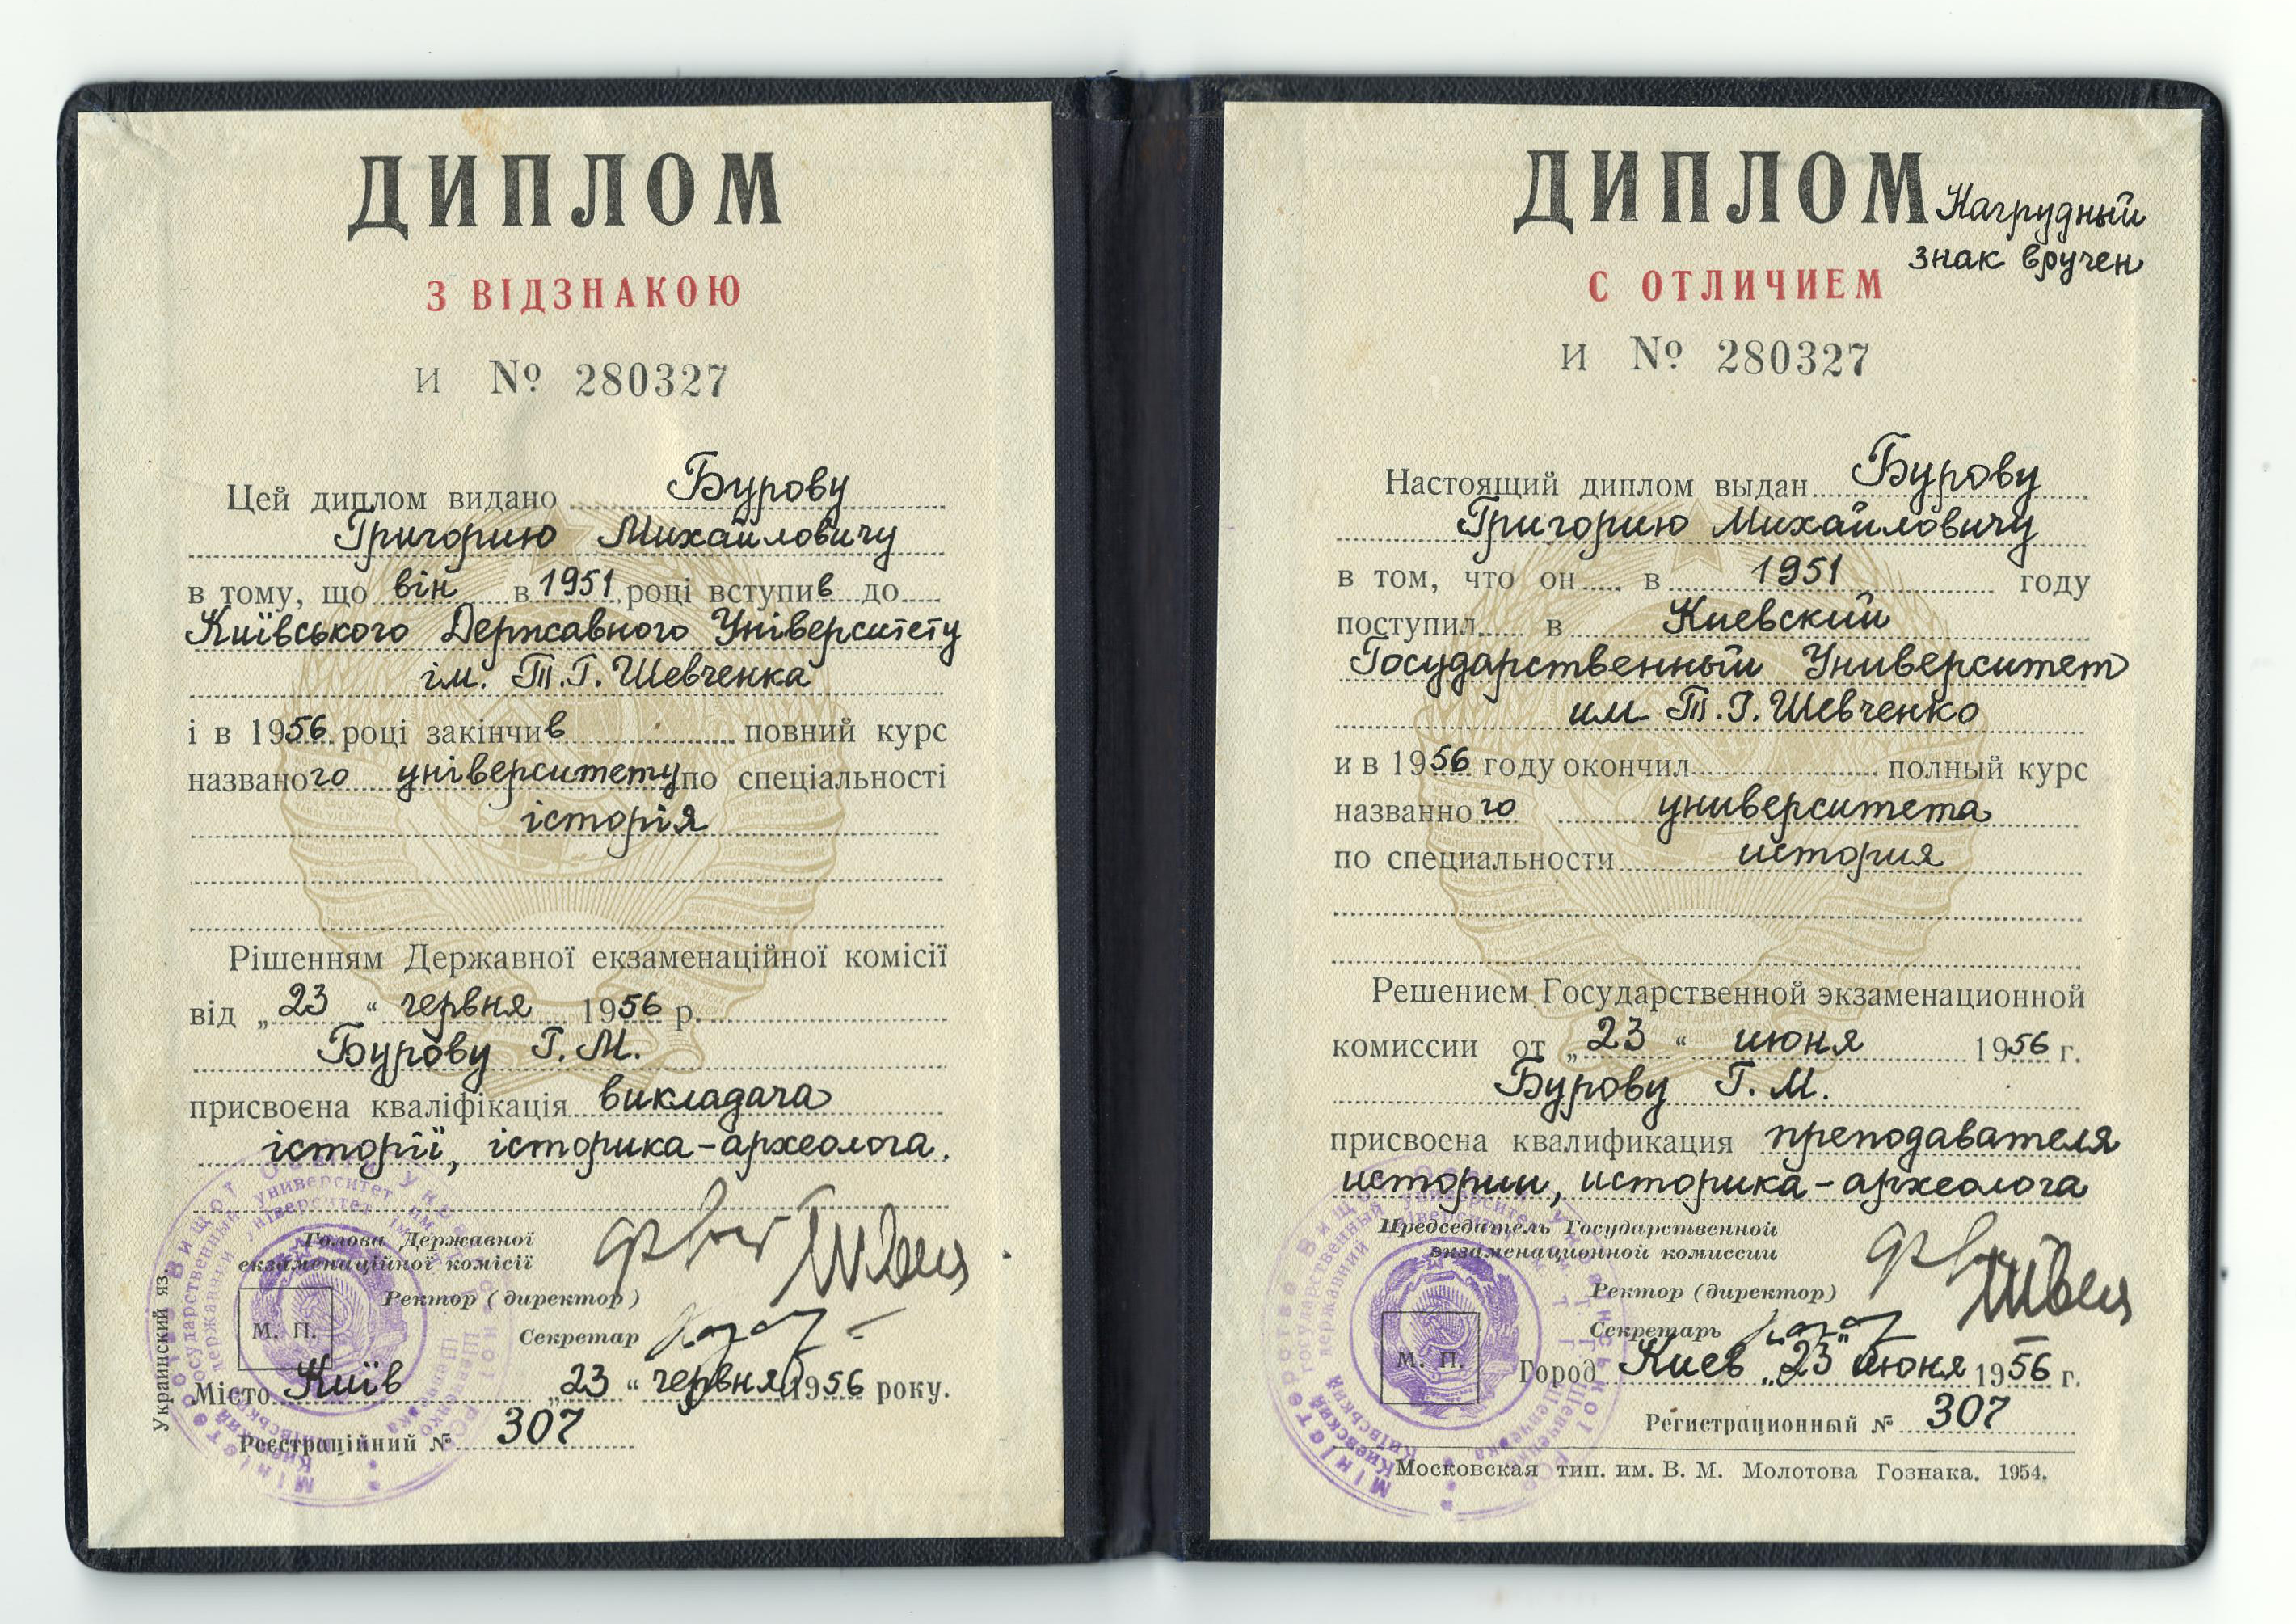 ДИПЛОМ
З ВІДЗНАКОЮ
И № 280327
Цей диплом видано Бурову
Григорию Михайловичу
в тому, що він в 1951 році вступив до
Київського Державного Університету
ім. Т.Г. Шевченка
і в 1956 році закінчив повний курс
названого університету по спеціальності
історія
Рішенням Державної екзаменаційної комісії
від „23“ червня 1956 р.
Бурову Г. М.
присвоєна кваліфікація викладача
історії, історика-археолога.
Голова Державної
екзаменаційної комісії
Ректор (директор)
Секретар
М. П.
Місто Київ „23“ червня 1956 року.
Реєстраційний № 307
Украинский яз.
ДИПЛОМ
Нагрудный
знак вручен
С ОТЛИЧИЕМ
И № 280327
Настоящий диплом выдан Бурову
Григорию Михайловичу
в том, что он в 1951 году
поступил в Киевский
Государственный Университет
им Т.Г. Шевченко
и в 1956 году окончил полный курс
названного университета
по специальности история
Решением Государственной экзаменационной
комиссии от „23“ июня 1956 г.
Бурову Г. М.
присвоена квалификация преподавателя
истории, историка-археолога
Председатель Государственной
экзаменационной комиссии
Ректор (директор)
Секретарь
М. П.
Город Киев „23“ июня 1956 г.
Регистрационный № 307
Московская тип. им. В. М. Молотова Гознака. 1954.